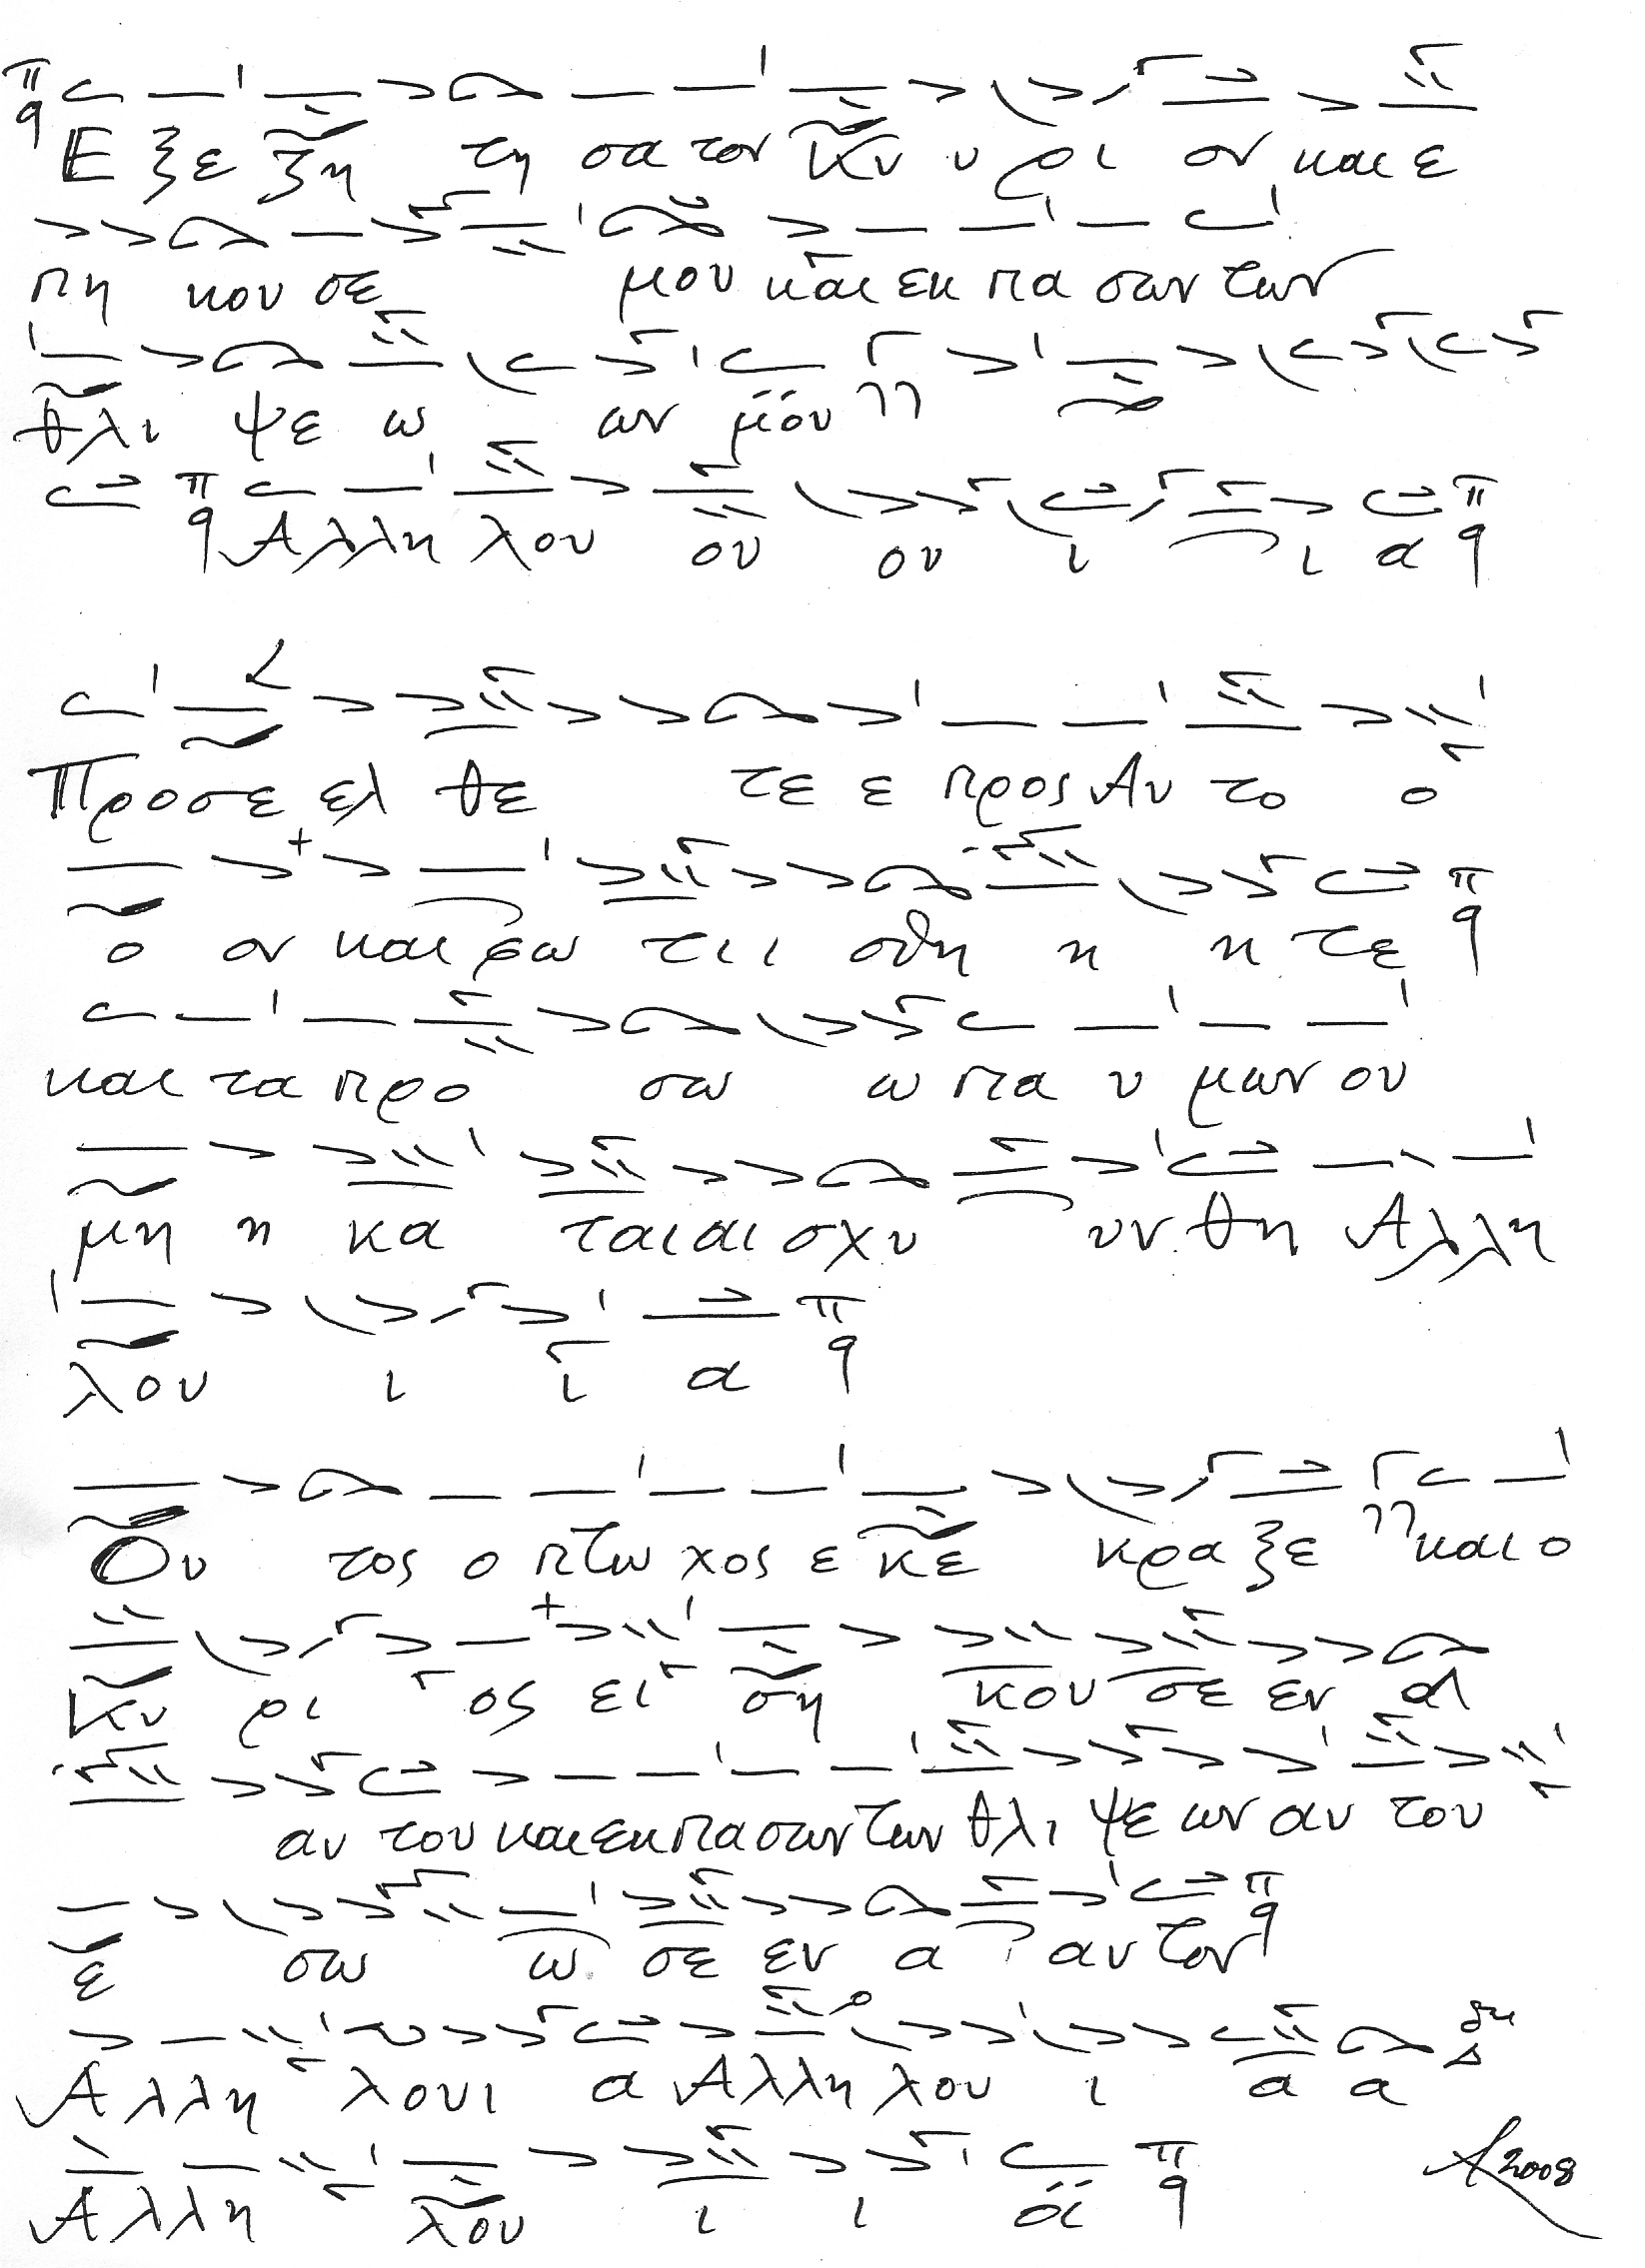 Ε ξε ζη τη σα τον Κυ υ ρι ον και ε
πη κου σε μου και εκ πα σων των
θλι ψε ω ων μου
Αλλη λου ου ου ι ι α
Προσε ελ θε τε ε προς Αυ το ο
ο ον και φω τι ι σθη η η τε
και τα προ σω ω πα υ μων ου
μη η κα ται αι σχυ υν θη Αλλη
λου ι ι α
Ου τος ο πτω χος ε κε κρα ξε και ο
Κυ ρι ος ει ση κου σε εν α
αυ του και εκ πα σων των θλι ψε ων αυ του
ε σω ω σε εν α αυ τον
Αλλη λουι α Αλλη λου ι α α
Αλλη λου ι ι α
2008